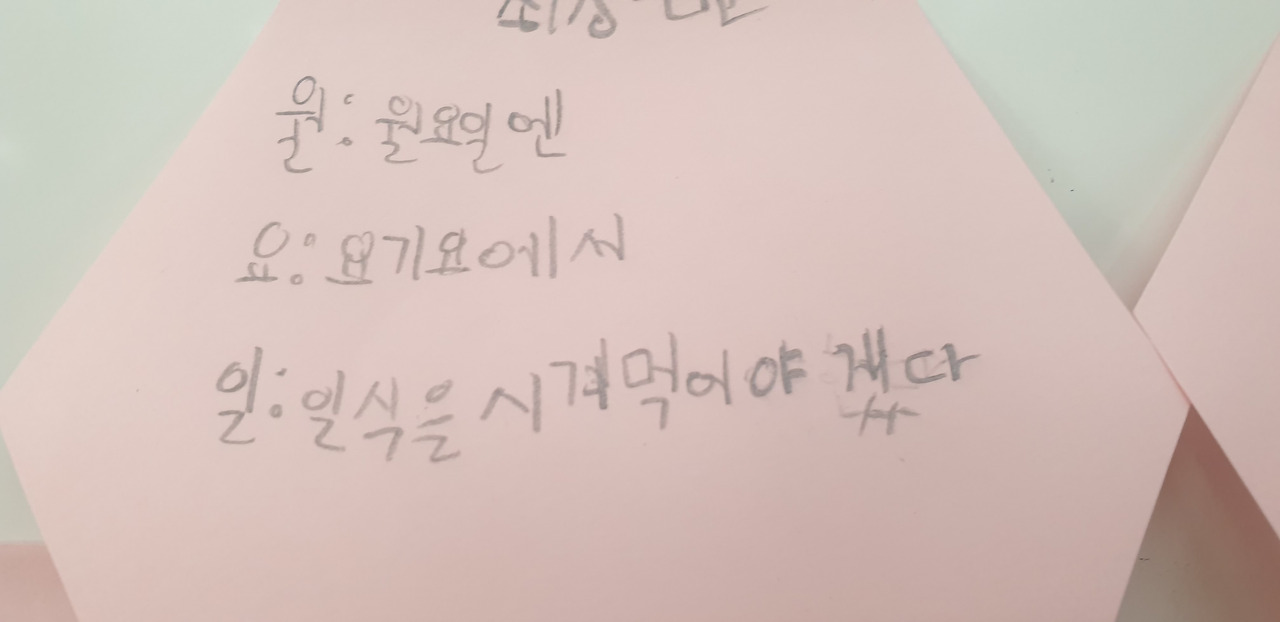 월: 월요일엔
요: 요기요에서
일: 일식을 시겨먹어야 겠다